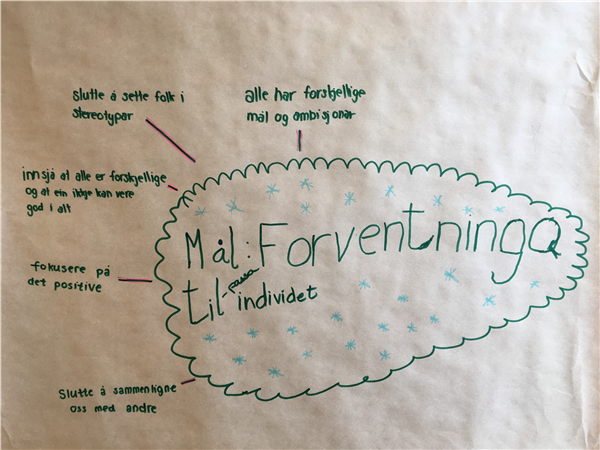 slutte å sette folk i
stereotypar
alle har forskjellige
mål og ambisjonar
innsjå at alle er forskjellige
og at ein ikkje kan vere
god i alt
fokusere på
det positive
Slutte å sammenligne
oss med andre
Mål: Forventninga
til-passa individet